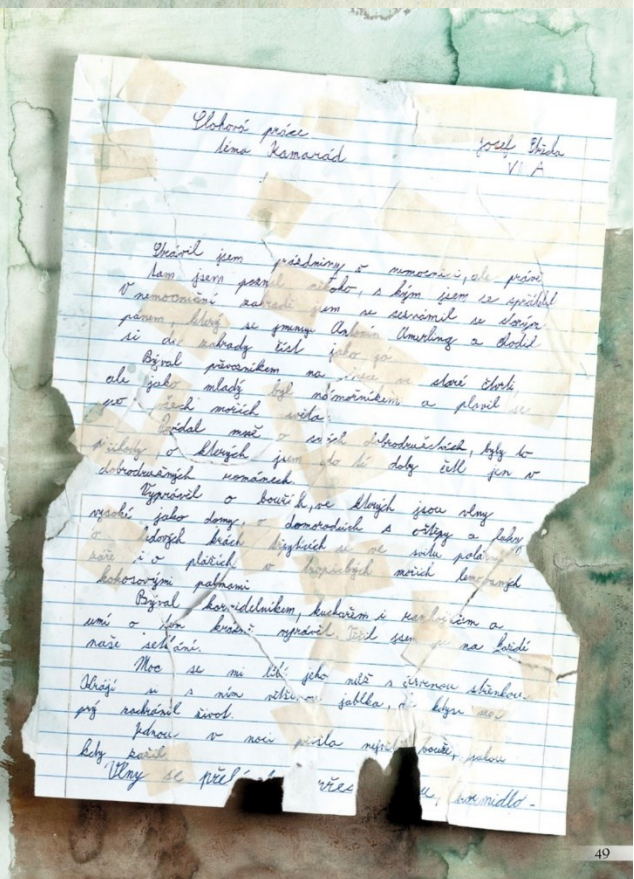 Slohová práce
téma Kamarád
Josef
VI. A
Strávil jsem prázdniny v nemocnici, ale právě
tam jsem poznal někoho, s kým jsem se spřátelil
V nemocniční zahradě jsem se seznámil se starým
pánem, který se jmenuje Antonín Amerling a chodil
si do zahrady číst jako já.
Býval převozníkem na řece ve staré čtvrti
ale jako mladý byl námořníkem a plavil se
po všech mořích světa.
Povídal mně o svých dobrodružstvích, byly to
příhody o kterých jsem do té doby četl jen v
dobrodružných románech.
Vyprávěl o bouřích, ve kterých jsou vlny
vysoké jako domy, o domorodcích s oštěpy a luky
o ledových krách třpytících se ve svitu polární
záře i o plážích v tropických mořích lemovaných
kokosovými palmami
Býval kormidelníkem, kuchařem i a
umí o tom krásně vyprávět. Těšil jsem se na každé
naše setkání.
Moc se mi líbí jeho nůž s červenou střenkou.
Krájí si s ním většinou jablka, ale kdysi mu
prý zachránil život.
Jednou v noci přišla bouře, jakou
kdy zažil
Vlny se přes
49